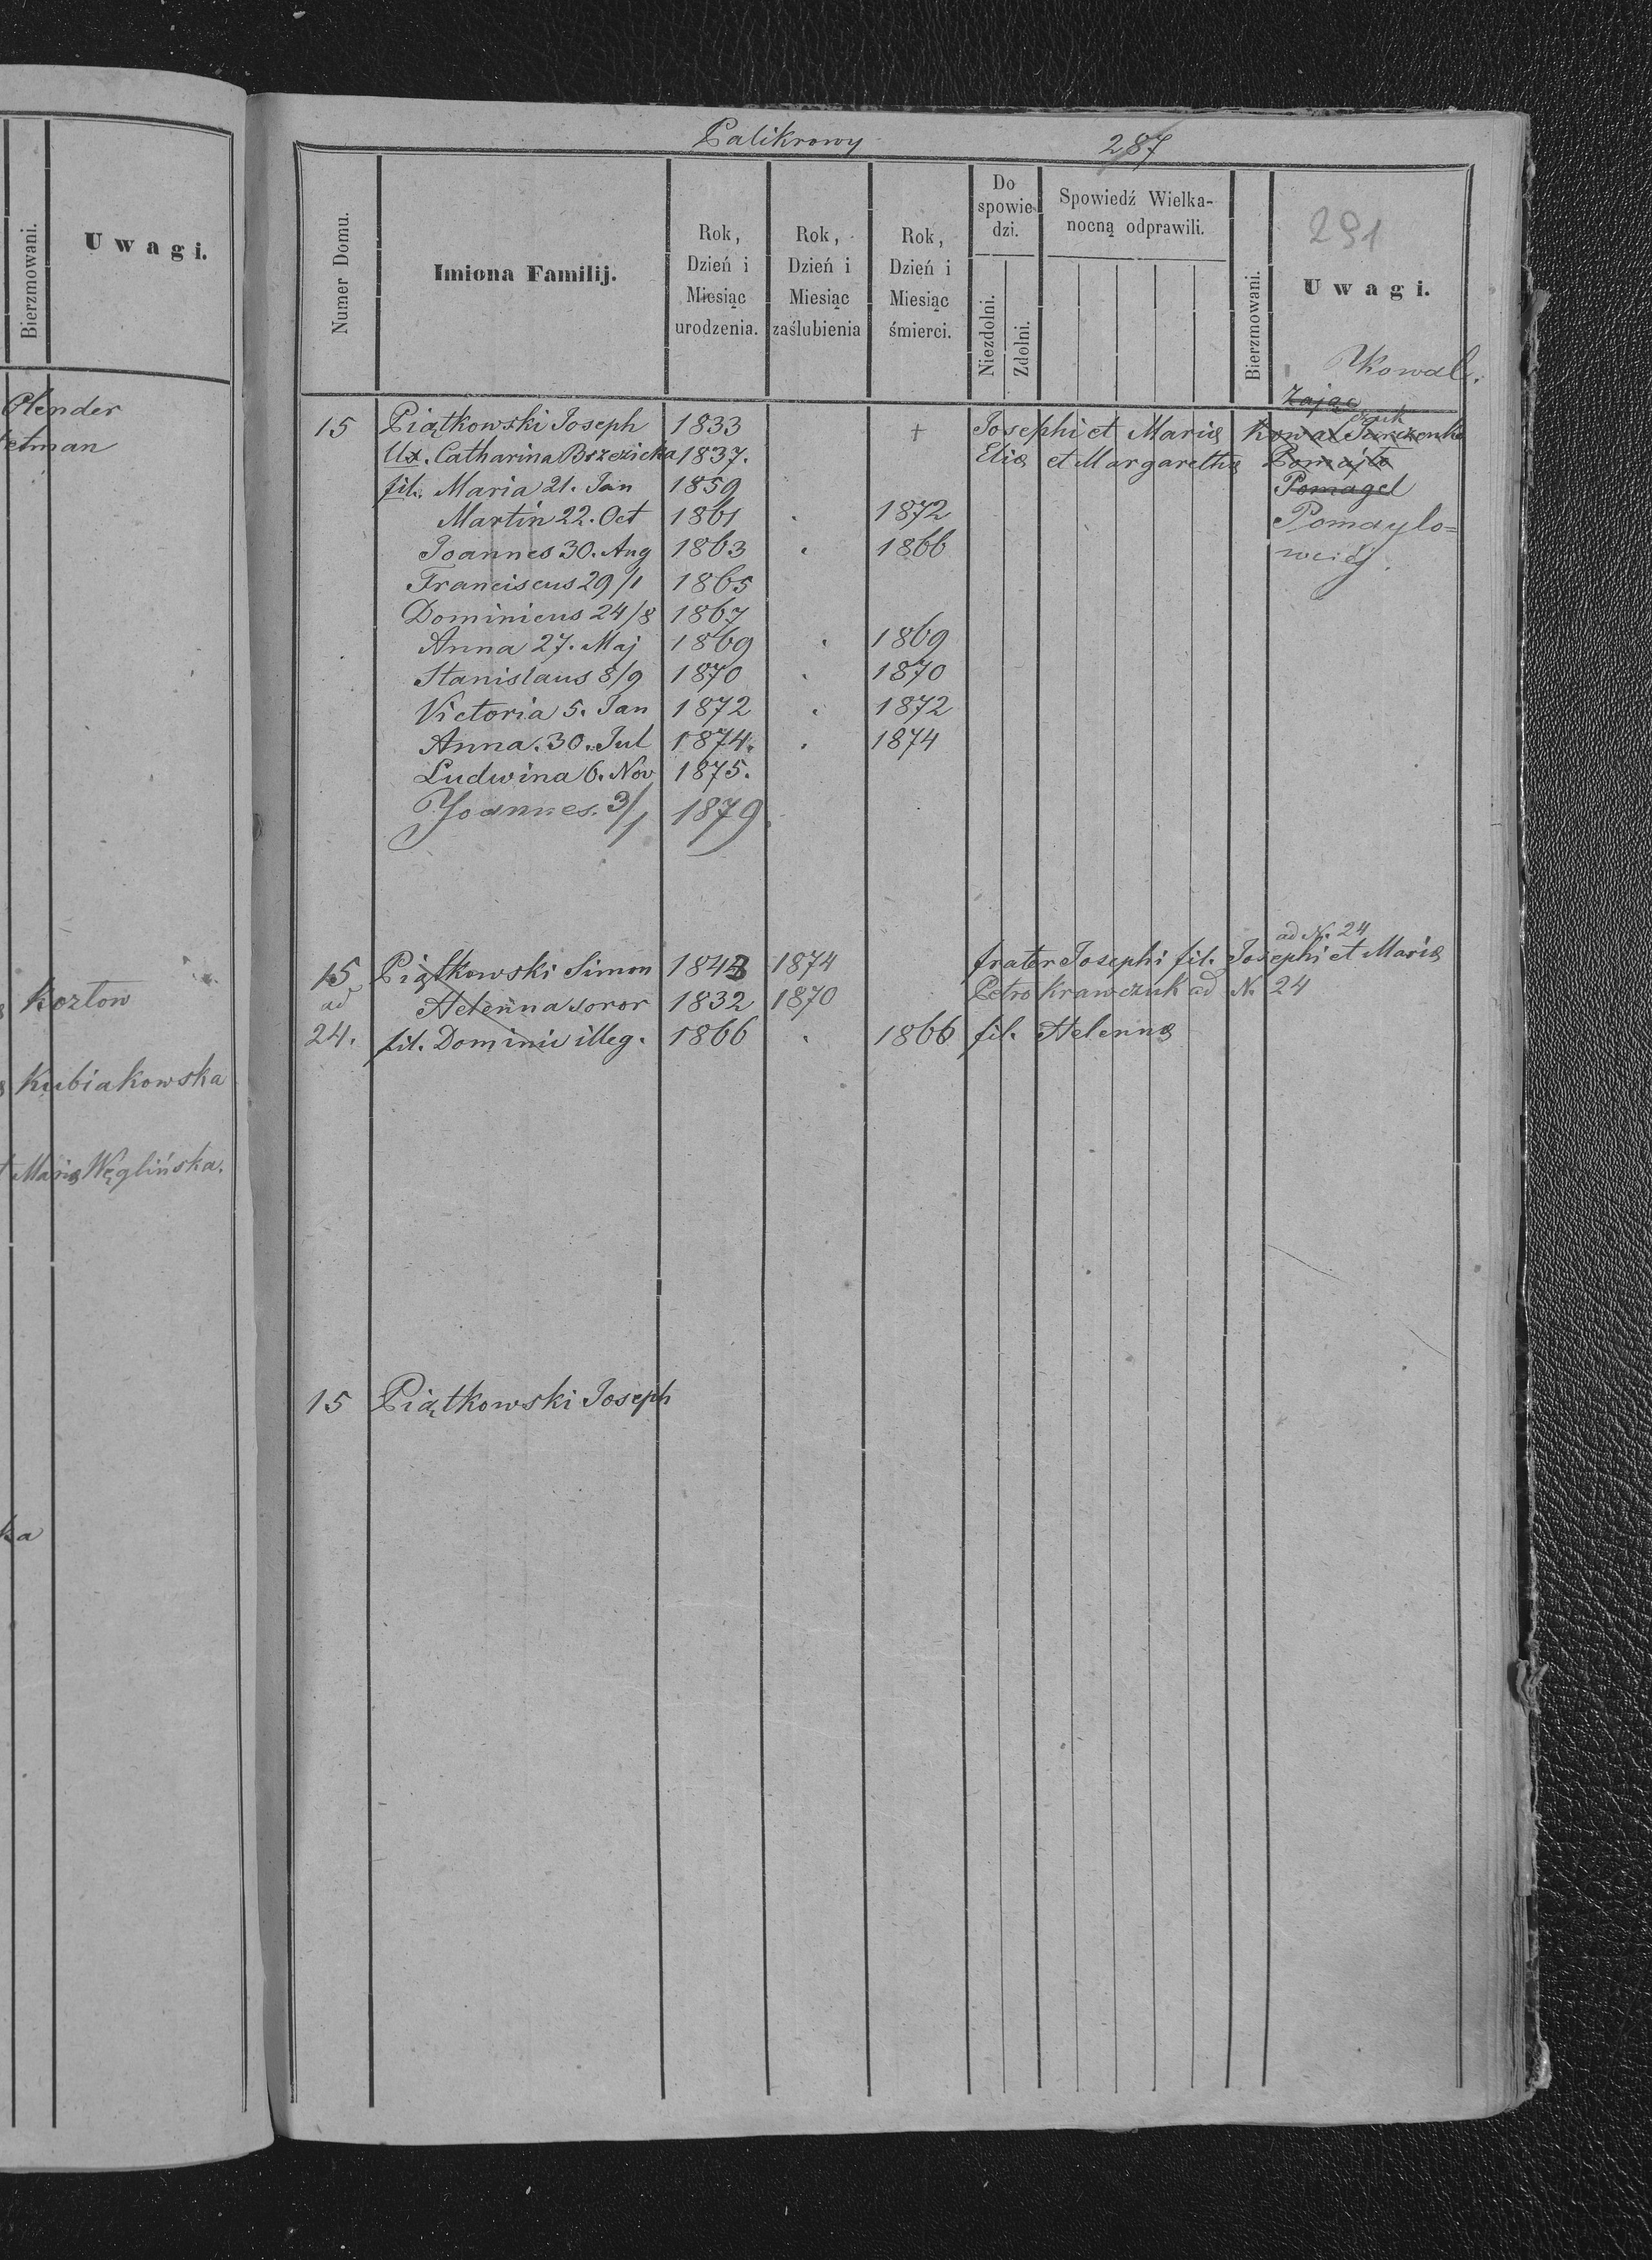 Bierzmowani.
Uwagi.
Olender
Kozłow
Kubiakowska
Mariæ Węglińska.
ka
Palikrowy
287
291
Numer Domu.
Imiona Familij.
Rok, Dzień i Miesiąc urodzenia.
Rok, Dzień i Miesiąc zaślubienia
Rok, Dzień i Miesiąc śmierci.
Do spowiedzi.
Niezdolni.
Zdolni.
Spowiedź Wielkanocną odprawili.
Bierzmowani.
Uwagi.
Kowal.
Zając
15 Piątkowski Joseph 1833 + Josephi et Mariæ Kowal
Ux. Catharina Brzezicka 1837. Eliæ et Margarethæ Pomajło
fil. Maria 21. Jan 1859 Pomagel
Martin 22. Oct 1861 . 1872 Pomaylo=
Joannes 30. Aug 1863 . 1866
Franciscus 29/1 1865
Dominicus 24/8 1867
Anna 27. Maj 1869 . 1869
Stanislaus 8/9 1870 . 1870
Victoria 5. Jan 1872 . 1872
Anna. 30. Jul 1874. . 1874
Ludwina 6. Nov 1875.
Joannes. 3/1 1879
ad N. 24
15 Piątkowski Simon 1843 1874 frater Josephi fil. Josephi et Mariæ
ad Helenna soror 1832 1870 Petro Krawczuk ad N. 24
24. fil. Dominic illeg. 1866 . 1866 fil. Helennæ
15 Piątkowski Joseph